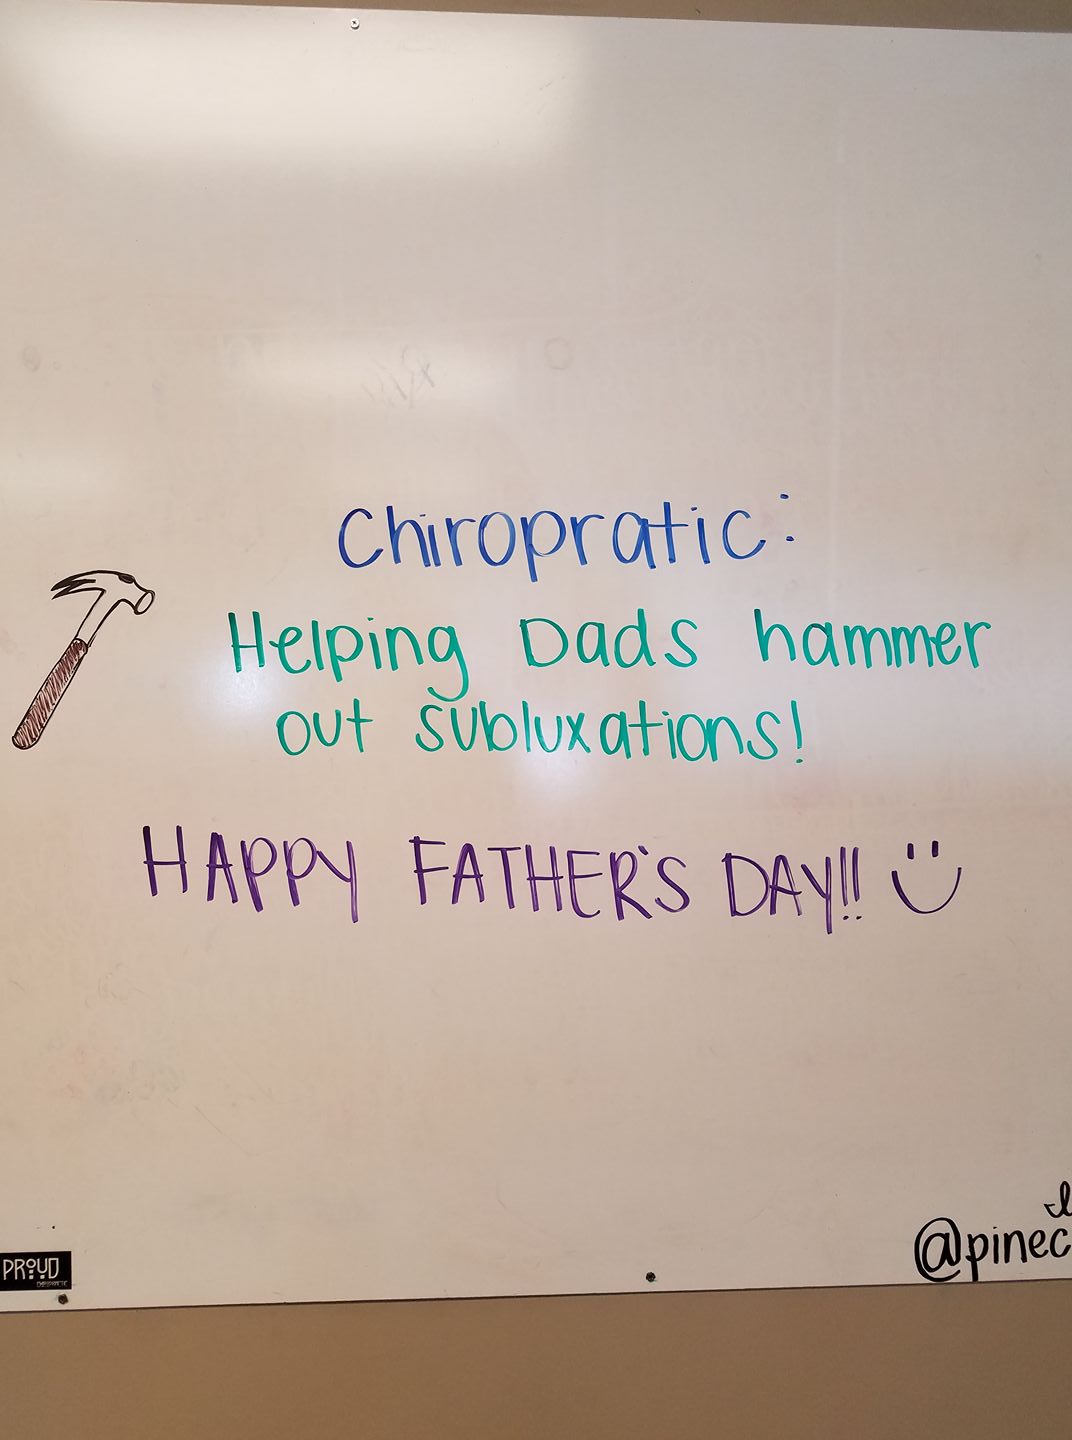 Chiropratic:
Helping Dads hammer
out subluxations!
HAPPY FATHER'S DAY!!
PROUD
CHIROPRACTIC
@pinec